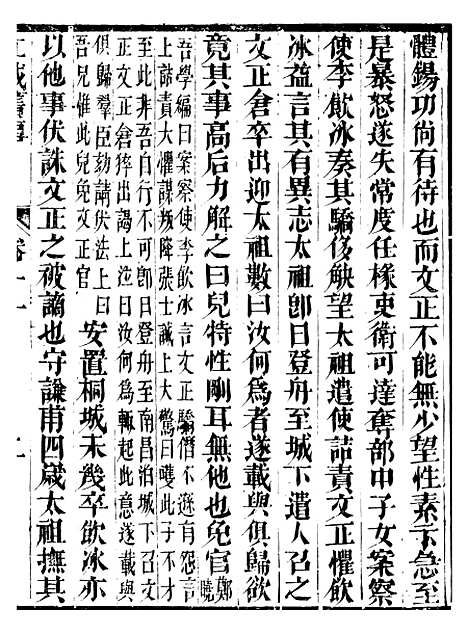 體錫功尚有待也而文正不能無少望性素卞急至
是暴怒遂失常度任掾吏衛可達奪部中子女案察
使李飲冰奏其驕侈觖望太祖遣使詰責文正懼飲
冰益言其有異志太祖卽日登舟至城下遣人召之
文正倉卒出迎太祖數曰汝何爲者遂載與俱歸欲
竟其事高后力解之曰兒特性剛耳無他也免官鄭曉
吾學編曰案察使李飲冰言文正驕僭不遜有怨言
上詰責大懼謀叛降張士誠上大驚曰嘻此子不才
至此非吾自行不可卽日登舟至南昌泊城下召文
正文正倉猝出謁上泣曰汝何爲輒起此意遂載與
俱歸羣臣劾請伏法上曰
吾兄惟此兒免文正官
安置桐城未幾卒飲冰亦
以他事伏誅文正之被謫也守謙甫四歲太祖撫其
卷十一